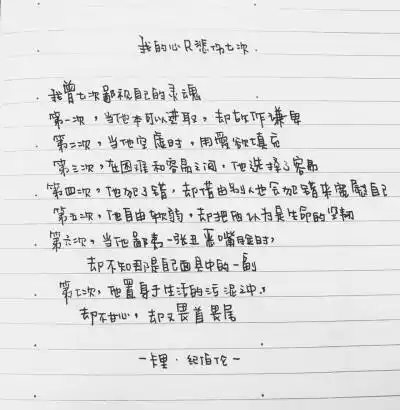 我的心只悲伤七次.
我曾七次鄙视自己的灵魂
第一次,当他本可以进取,却故作谦卑
第二次,当他空虚时,用爱欲填充
第三次,在困难和容易之间,他选择了容易
第四次,他犯了错,却借由别人也会犯错来宽慰自己
第五次,他自由软弱,却把它认为是生命的坚韧
第六次,当他鄙夷一张丑恶嘴脸时,
却不知那是自己面具中的一副
第七次,他置身于生活的污泥之中,
却不甘心,却又畏首畏尾
-卡里·纪伯伦-